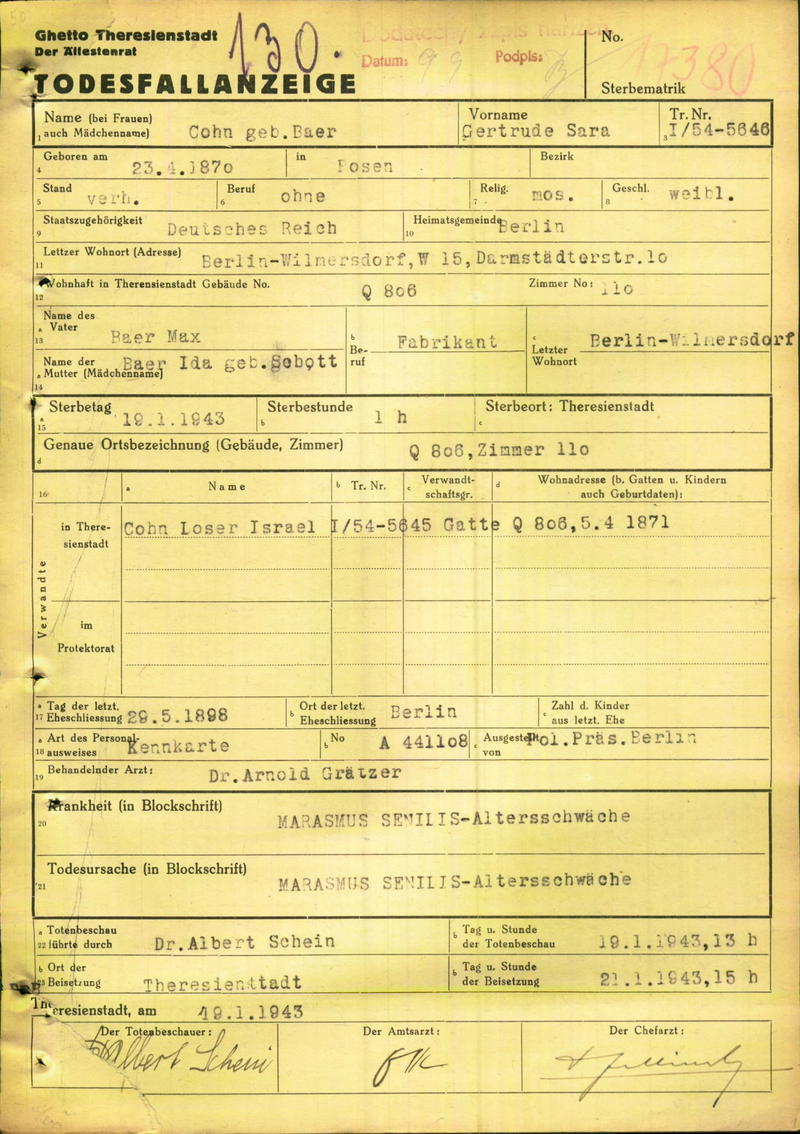 Ghetto Theresienstadt
Der Ältestenrat
130.
TODESFALLANZEIGE
Datum:
Podpis:
No.
17380
Sterbematrik
Name (bei Frauen)
1 auch Mädchenname)
Cohn geb.Baer
Vorname
Gertrude Sara
Tr. Nr.
3 I/54-5646
Geboren am
4 23.4.1870
in
Posen
Bezirk
Stand
5 verh.
Beruf
6 ohne
Relig.
7 mos.
Geschl.
8 weibl.
Staatszugehörigkeit
9 Deutsches Reich
Heimatsgemeinde
10 Berlin
Lettzer Wohnort (Adresse)
11 Berlin-Wilmersdorf,W 15,Darmstädterstr.lo
Wohnhaft in Theresienstadt Gebäude No.
12 Q 8o6
Zimmer No: llo
Name des
a Vater
13 Baer Max
b Be-
ruf
Fabrikant
c Letzter
Wohnort
Berlin-Wilmersdorf
Name der
a Mutter (Mädchenname)
14 Baer Ida geb.Sobott
Sterbetag
a 15 19.1.1943
Sterbestunde
b 1 h
Sterbeort: Theresienstadt
c
Genaue Ortsbezeichnung (Gebäude, Zimmer)
d Q 8o6,Zimmer llo
16 a Name
b Tr. Nr.
c Verwandt-
schaftsgr.
d Wohnadresse (b. Gatten u. Kindern
auch Geburtdaten):
Verwandte
in There-
sienstadt
Cohn Loser Israel I/54-5645 Gatte Q 8o6,5.4 1871
im
Protektorat
a Tag der letzt.
17 Eheschliessung 29.5.1898
b Ort der letzt.
Eheschliessung Berlin
c Zahl d. Kinder
aus letzt. Ehe
a Art des Personal-
18 ausweises Kennkarte
b No A 441108
c Ausgestellt
von Pol.Präs.Berlin
19 Behandelnder Arzt: Dr.Arnold Grätzer
Krankheit (in Blockschrift)
20 MARASMUS SENILIS-Altersschwäche
Todesursache (in Blockschrift)
21 MARASMUS SENILIS-Altersschwäche
a Totenbeschau
22 führte durch Dr.Albert Schein
b Tag u. Stunde
der Totenbeschau 19.1.1943,13 h
b Ort der
23 Beisetzung Theresienttadt
b Tag u. Stunde
der Beisetzung 21.1.1943,15 h
Theresienstadt, am 19.1.1943
Der Totenbeschauer:
Albert Schein
Der Amtsarzt:
Der Chefarzt: